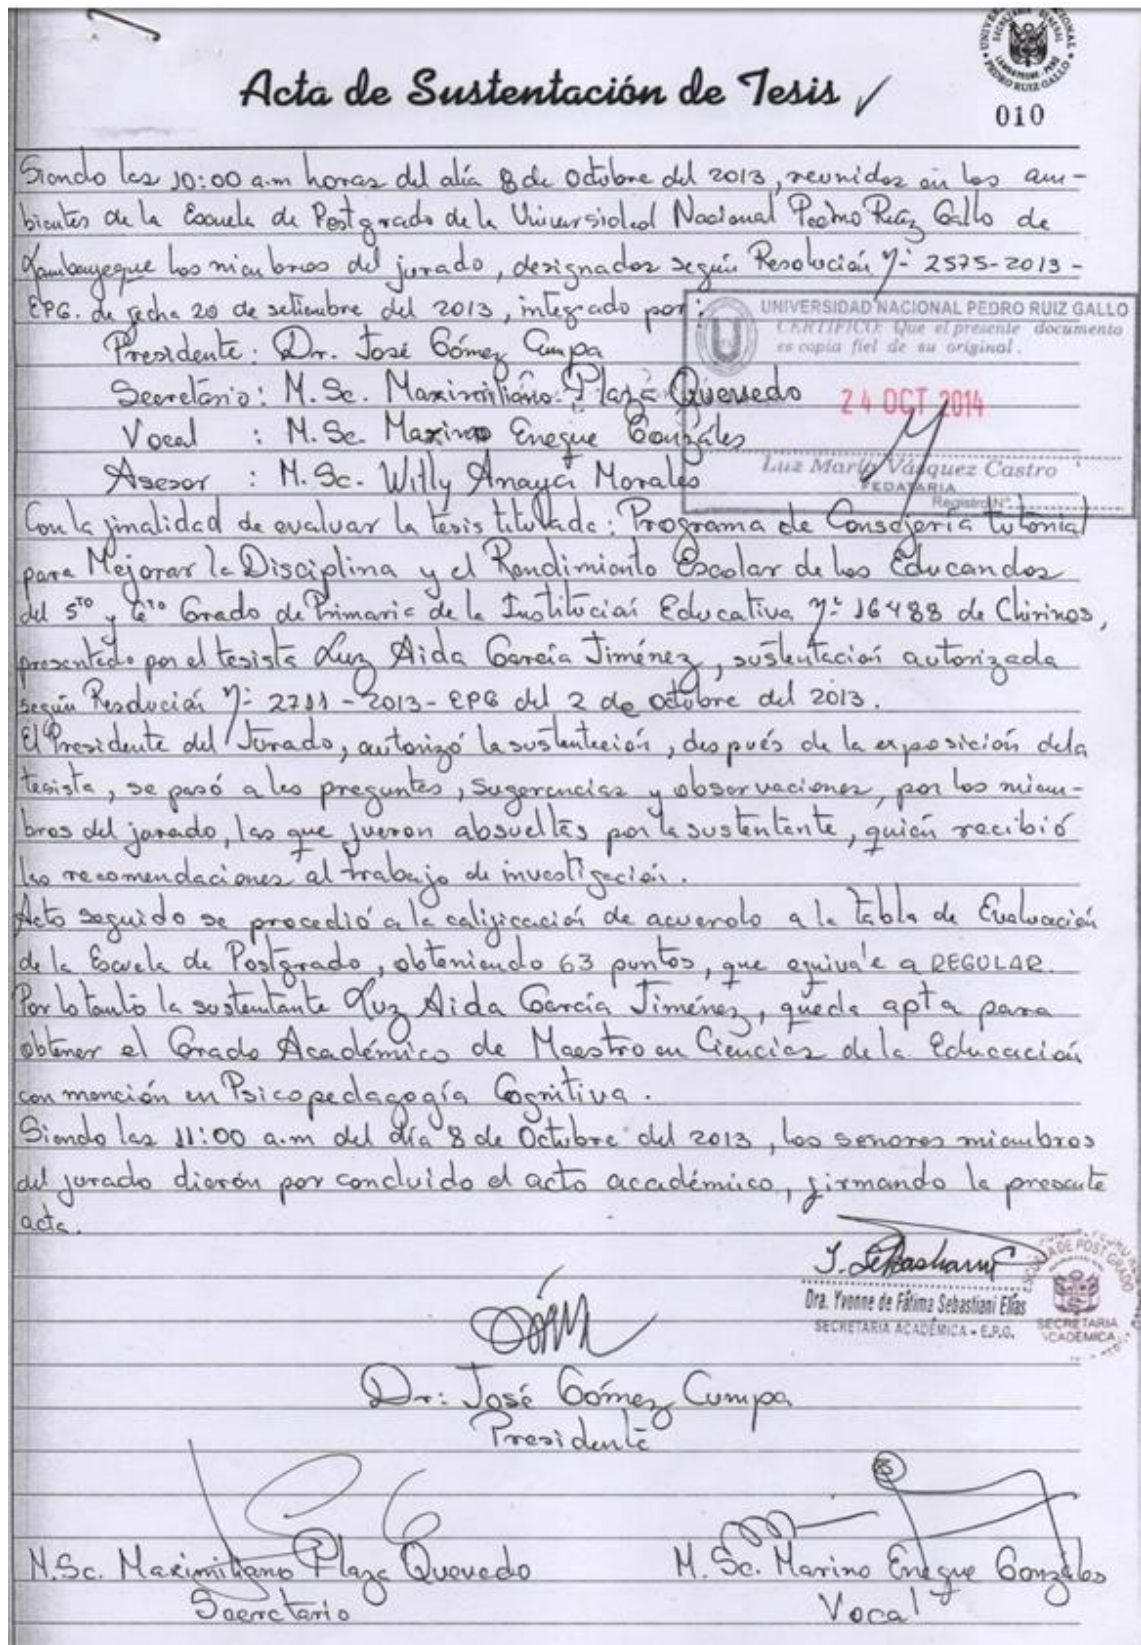 Acta de Sustentación de Tesis
010
Siendo las 10:00 a.m horas del día 8 de Octubre del 2013, reunidos en los am-
bientes de la Escuela de Postgrado de la Universidad Nacional Pedro Ruiz Gallo de
Lambayeque los miembros del jurado, designados según Resolución N° 2575-2013-
EPG. de fecha 20 de setiembre del 2013, integrado por:
Presidente: Dr. José Gómez Cumpa
Secretario: M.Sc. Maximiliano Plaza Quevedo
Vocal : M.Sc. Marino Eneque Gonzáles
Asesor : M.Sc. Willy Anaya Morales
UNIVERSIDAD NACIONAL PEDRO RUIZ GALLO
CERTIFICO: Que el presente documento
es copia fiel de su original.
24 OCT 2014
Luz María Vásquez Castro
FEDATARIA
Registro N°
Con la finalidad de evaluar la tesis titulada: Programa de Consejería tutorial
para Mejorar la Disciplina y el Rendimiento Escolar de los Educandos
del 5TO y 6TO Grado de Primaria de la Institución Educativa N° 16488 de Chirinos,
presentado por el tesista Luz Aida García Jiménez, sustentación autorizada
según Resolución N° 2711-2013-EPG del 2 de octubre del 2013.
El Presidente del Jurado, autorizó la sustentación, después de la exposición dela
tesista, se pasó a las preguntas, sugerencias y observaciones, por los miem-
bros del jurado, las que fueron absueltas por la sustentante, quién recibió
las recomendaciones al trabajo de investigación.
Acto seguido se procedió a la calificación de acuerdo a la tabla de Evaluación
de la Escuela de Postgrado, obteniendo 63 puntos, que equivale a REGULAR.
Por lo tanto la sustentante Luz Aida García Jiménez, queda apta para
obtener el Grado Académico de Maestro en Ciencias de la Educación
con mención en Psicopedagogía Cognitiva.
Siendo las 11:00 a.m del día 8 de Octubre del 2013, los senores miembros
del jurado dierón por concluido el acto académico, firmando la presente
acta.
Dra. Yvonne de Fátima Sebastiani Elías
SECRETARIA ACADÉMICA - E.P.G.
SECRETARIA
ACADÉMICA
Dr: José Gómez Cumpa
Presidente
M.Sc. Maximiliano Plaza Quevedo
Secretario
M. Sc. Marino Eneque Gonzáles
Vocal